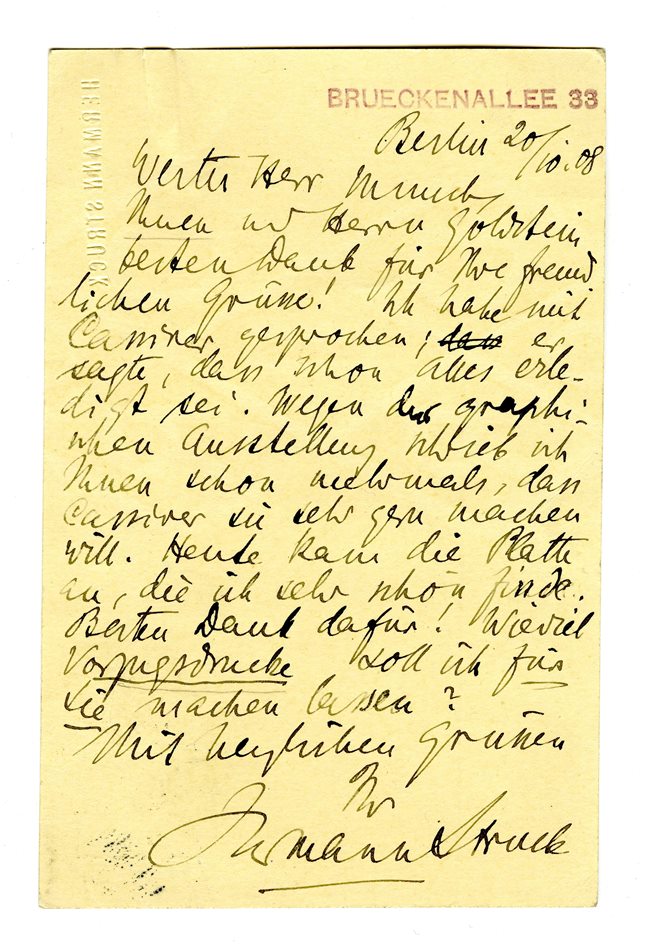 HERMANN STRUCK
BRUECKENALLEE 33
Berlin 20/10.08
Werter Herr Munch
Ihnen und Herrn Goldstein
besten Dank für Ihre freund
lichen Grüsse! Ich habe mit
Cassirer gesprochen; dass er
sagte, dass schon alles erle-
digt sei. Wegen der graphi-
schen Ausstellung schrieb ich
Ihnen schon mehrmals, dass
Cassirer sie sehr gern machen
will. Heute kam die Platte
an, die ich sehr schön finde.
Besten Dank dafür! Wieviel
Vorzugsdrucke soll ich für
Sie machen lassen?
Mit herzlichen Grüssen
Ihr
Hermann Struck